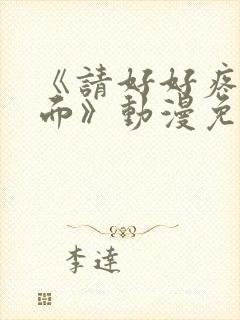 《請好好疼
而》動漫免
李達